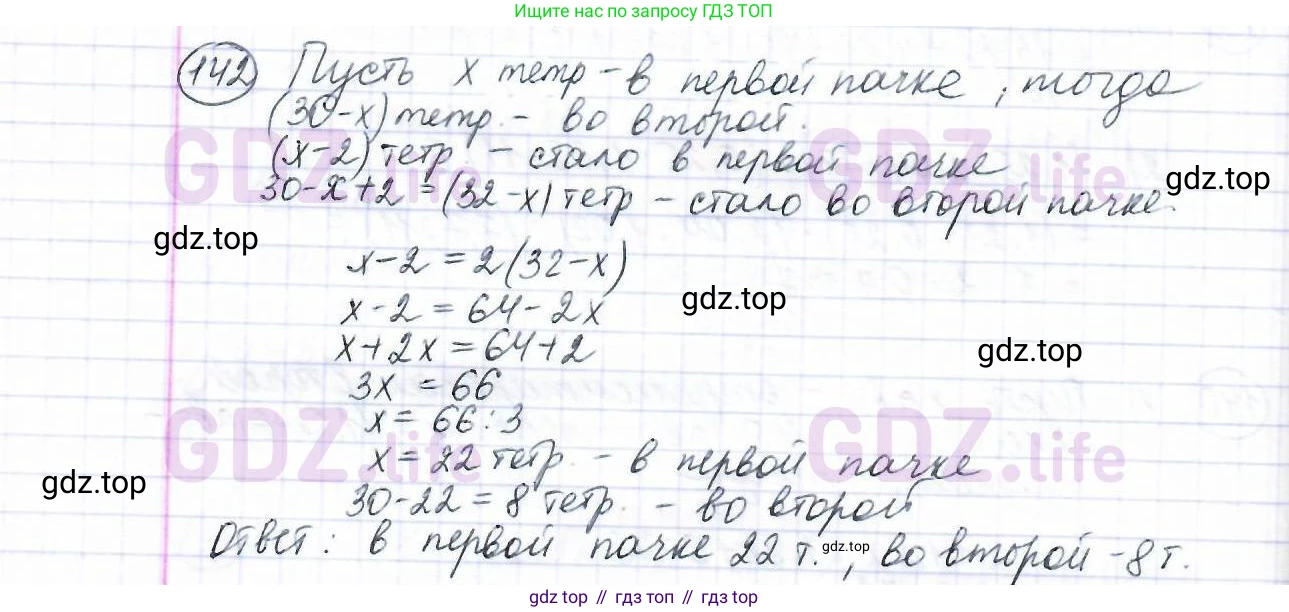 Ищите нас по запросу ГДЗ ТОП
142 Пусть x тетр - в первой пачке, тогда
(30-x) тетр. - во второй.
(x-2) тетр. - стало в первой пачке
gdz.top
30-x+2 = (32-x) тетр - стало во второй пачке.
gdz.top
x-2 = 2(32-x)
gdz.top
x-2 = 64-2x
x+2x = 64+2
gdz.top
3x = 66
x = 66:3
x = 22 тетр. - в первой пачке
gdz.top
30-22 = 8 тетр. - во второй
Ответ: в первой пачке 22 т., во второй -8 т.
gdz.top
GDZ.life
GDZ.life
GDZ.life
GDZ.life
gdz top // гдз топ // гдз top